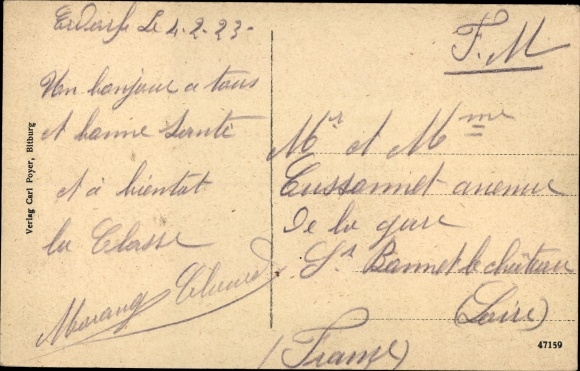 Le 4-2-23-
Un bonjour a tous
et bonne santé
et a bientot
la Classe
F.M
Mr et Mme
avenue
De la gare
St Bonnet le château
(Loire)
(France)
Verlag Carl Poyer, Bitburg
47159